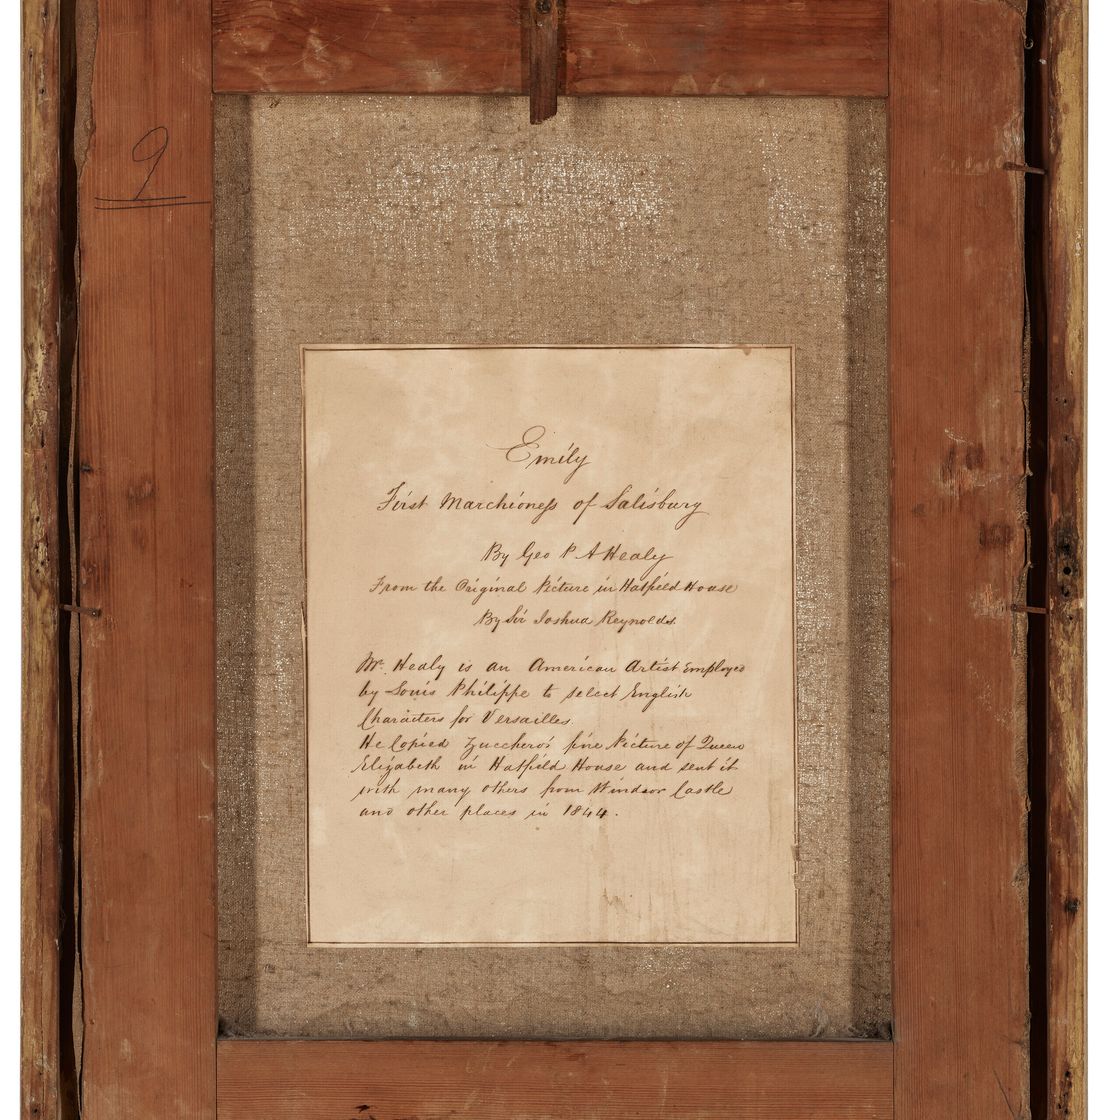 9
Emily
First Marchioness of Salisbury
By Geo P. A Healy
From the Original Picture in Hatfield House
By Sir Joshua Reynolds.
Mr. Healy is an American Artist Employed
by Louis Philippe to select English
Characters for Versailles.
He Copied Zucchero's fine Picture of Queen
Elizabeth in Hatfield House and sent it
with many others from Windsor Castle
and other places in 1844.